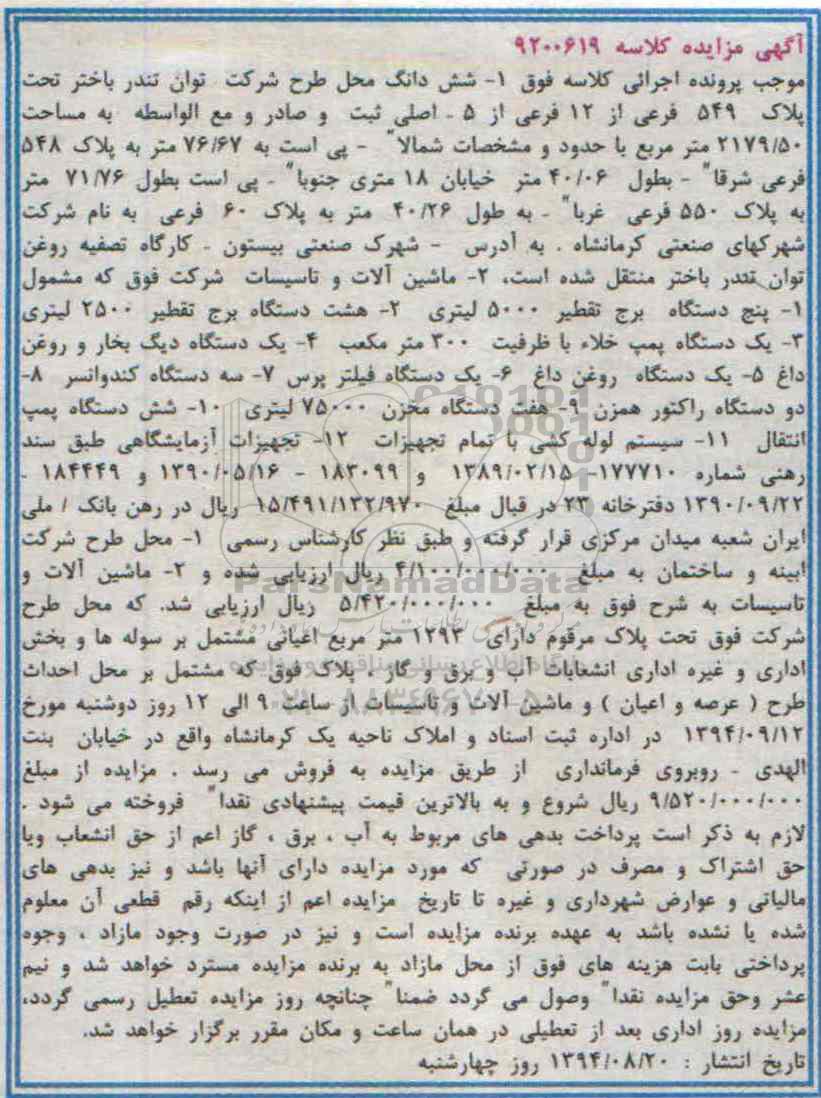 آگهی مزایده کلاسه ۹۲۰۰۶۱۹
موجب پرونده اجرائی کلاسه فوق ۱- شش دانگ محل طرح شرکت توان تندر باختر تحت
پلاک ۵۴۹ فرعی از ۱۲ فرعی از ۵ - اصلی ثبت و صادر و مع الواسطه به مساحت
۲۱۷۹/۵۰ متر مربع با حدود و مشخصات شمالا" - پی است به ۷۶/۶۷ متر به پلاک ۵۴۸
فرعی شرقا" - بطول ۴۰/۰۶ متر خیابان ۱۸ متری جنوبا" - پی است بطول ۷۱/۷۶ متر
به پلاک ۵۵۰ فرعی غربا" - به طول ۴۰/۲۶ متر به پلاک ۶۰ فرعی به نام شرکت
شهرکهای صنعتی کرمانشاه . به آدرس - شهرک صنعتی بیستون - کارگاه تصفیه روغن
توان تندر باختر منتقل شده است، ۲- ماشین آلات و تاسیسات شرکت فوق که مشمول
۱- پنج دستگاه برج تقطیر ۵۰۰۰ لیتری ۲- هشت دستگاه برج تقطیر ۲۵۰۰ لیتری
۳- یک دستگاه پمپ خلاء با ظرفیت ۳۰۰ متر مکعب ۴- یک دستگاه دیگ بخار و روغن
داغ ۵- یک دستگاه روغن داغ ۶- یک دستگاه فیلتر پرس ۷- سه دستگاه کندوانسر ۸-
دو دستگاه راکتور همزن ۹- هفت دستگاه مخزن ۷۵۰۰۰ لیتری ۱۰- شش دستگاه پمپ
انتقال ۱۱- سیستم لوله کشی با تمام تجهیزات ۱۲- تجهیزات آزمایشگاهی طبق سند
رهنی شماره ۱۷۷۷۱۰- ۱۳۸۹/۰۲/۱۵ و ۱۸۳۰۹۹ - ۱۳۹۰/۰۵/۱۶ و ۱۸۴۴۴۹ -
۱۳۹۰/۰۹/۲۲ دفترخانه ۲۳ در قبال مبلغ ۱۵/۴۹۱/۱۳۲/۹۷۰ ریال در رهن بانک / ملی
ایران شعبه میدان مرکزی قرار گرفته و طبق نظر کارشناس رسمی ۱- محل طرح شرکت
ابنیه و ساختمان به مبلغ ۴/۱۰۰/۰۰۰/۰۰۰ ریال ارزیابی شده و ۲- ماشین آلات و
تاسیسات به شرح فوق به مبلغ ۵/۴۲۰/۰۰۰/۰۰۰ ریال ارزیابی شد. که محل طرح
شرکت فوق تحت پلاک مرقوم دارای ۱۲۹۳ متر مربع اعیانی مشتمل بر سوله ها و بخش
اداری و غیره اداری انشعابات آب و برق و گاز ، پلاک فوق که مشتمل بر محل احداث
طرح ( عرصه و اعیان ) و ماشین آلات و تاسیسات از ساعت ۹ الی ۱۲ روز دوشنبه مورخ
۱۳۹۴/۰۹/۱۲ در اداره ثبت اسناد و املاک ناحیه یک کرمانشاه واقع در خیابان بنت
الهدی - روبروی فرمانداری از طریق مزایده به فروش می رسد . مزایده از مبلغ
۹/۵۲۰/۰۰۰/۰۰۰ ریال شروع و به بالاترین قیمت پیشنهادی نقدا" فروخته می شود .
لازم به ذکر است پرداخت بدهی های مربوط به آب ، برق ، گاز اعم از حق انشعاب ویا
حق اشتراک و مصرف در صورتی که مورد مزایده دارای آنها باشد و نیز بدهی های
مالیاتی و عوارض شهرداری و غیره تا تاریخ مزایده اعم از اینکه رقم قطعی آن معلوم
شده یا نشده باشد به عهده برنده مزایده است و نیز در صورت وجود مازاد ، وجوه
پرداختی بابت هزینه های فوق از محل مازاد به برنده مزایده مسترد خواهد شد و نیم
عشر وحق مزایده نقدا" وصول می گردد ضمنا" چنانچه روز مزایده تعطیل رسمی گردد،
مزایده روز اداری بعد از تعطیلی در همان ساعت و مکان مقرر برگزار خواهد شد.
تاریخ انتشار : ۱۳۹۴/۰۸/۲۰ روز چهارشنبه
ParsNamadData